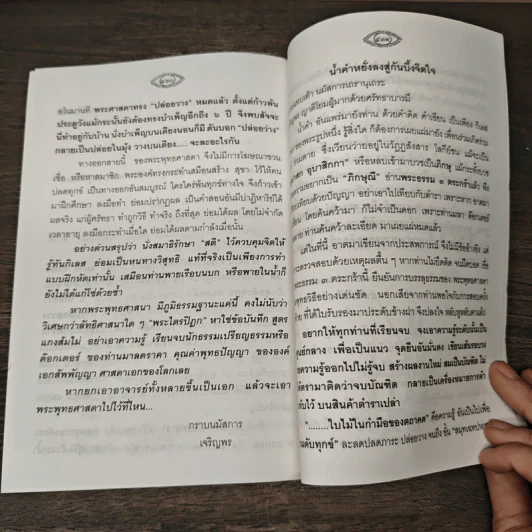 ชในมานที พระศาสดาทรง "ปล่อยวาง" หมดแล้ว ตั้งแต่ก้าวพ้น
ประตูวังแม้กระนั้นยังต้องทรงบำเพ็ญอีกถึง ๖ ปี จึงพบสัจจะ
นี่ทำอยู่กับบ้าน นั่งบำเพ็ญบนเตียงนอนก็มี ดันบอก "ปล่อยวาง"
กลายเป็นปล่อยในมุ้ง วางบนเตียง..... จะละอะไรกัน
ทางออกสายนี้ ของพระพุทธศาสดา จึงไม่มีการโฆษณาชวน
เชื่อ หรือหาสมาชิก พระองค์ทรงกระทำเสมือนสร้าง สุขา ไว้ให้คน
ปลดทุกข์ เป็นทางออกอันสมบูรณ์ ใครใคร่พ้นทุกข์ทางใจ จึงก้าวเข้า
มาฝึกศึกษา ลงมือทำ ย่อมปรากฏผล เป็นคำสอนอันมีปาฏิหาริย์ได้
ผลจริง แก่ผู้ศรัทธา ทำถูกวิธี ทำจริง ถึงที่สุด ย่อมได้ผล โดยไม่จำกัด
เวลาอายุ ลงมือกระทำเมื่อใด ย่อมได้ผลตามกำลังเมื่อนั้น
อย่างด่วนสรุปว่า นั่งสมาธิรักษา "สติ" ไว้ควบคุมจิตให้
รู้ทันกิเลส ย่อมเป็นหนทางวิสุทธิ แต่ที่จริงเป็นเพียงการทำ
แบบฝึกหัดเท่านั้น เสมือนท่านพายเรือบนบก หรือพายในน้ำก็
ยังไม่ได้แก้โซ่ด้วยซ้ำ
หากพระพุทธศาสนา มีภูมิธรรมฐานะแค่นี้ คงไม่นับว่า
วิเศษกว่าลัทธิศาสนาใด ๆ "พระไตรปิฎก" หาใช่ข้อบันทึก สูตร
แกงส้มไม่ อย่าเอาความรู้ เรียนจบนักธรรมเปรียญธรรมหรือ
ด๊อกเตอร์ ของท่านมาลดราคา คุณค่าพุทธปัญญา ขององค์
เอกสัพพัญญู ศาสดาเอกของโลกเลย
หากยกเอาอาจารย์ทั้งหลายขึ้นเป็นเอก แล้วจะเอา
พระพุทธศาสดาไปไว้ที่ไหน...
กราบนมัสการ
เจริญพร
น้ำคำหยั่งลงสู่ก้นบึ้งจิตใจ
นมัสการเถรานุเถระ
ญาติโยมผู้มากด้วยศรัทธาบารมี
น้ำคำ อันแพร่มายังท่าน ด้วยคำคิด คำเขียน เป็นเพียง
ของพระรูปหนึ่ง รู้สิ่งใด ก็ต้องการเผยแผ่มายัง เพื่อร่วมเกิดร่วม
ตาย ซึ่งเวียนว่ายอยู่ในวัฏฏสังสาร โลกีย์ชน แม้จะเป็น
อุบาสิกา" หรือหลบเข้ามาบวชเป็นภิกษุ แม้กระทั่งบวช
ความอยากเป็น "ภิกษุณี" อ่านพระธรรม ๓ ตระกร้าแล้ว
เทียบด้วยปัญญา อย่าเอาไปเทียบกับตำรา เพราะหาก
โดยค้นคว้ามา ก็ไม่จำเป็นดอก เพราะท่านมหา ด๊อกเตอร์
ท่านค้นคว้าละเอียด มาเผยแผ่หมดแล้ว
แต่ในที่นี้ อาตมาเขียนจากประสพการณ์ จึงไม่มีชื่ออ้างอิง
ตรวจสอบด้วยเหตุผลตื้น ๆ หากท่านไม่ยึดติด
ธรรม ๓ ตระกร้านี้ ยืนยันการบรรลุธรรมของ พระพุทธศาสดา
พุทธวิธีอย่างเด่นชัด นอกเสียจากท่านพอใจกับการสอบครั้ง
ที่ได้ใบรับรองมาประดับข้างฝา จึงปลงใจ
อยากให้ทุกท่านที่เรียนจบ จงเอาความรู้ระดับนั้นเป็น
กลาง เพื่อเป็นแนว จุดยืนอันมั่นคง
ความรู้ออกไปไม่รู้จบ สร้างผลงานใหม่ สมเป็นบัณฑิต
มาติดว่าจบบัณฑิต กลายเป็นเครื่องหมายการค้า
ไว้ บนสินค้าตำราเปล่า
"........ใบไม้ในกำมือของตถาคต" คือความรู้ อันเป็นไปเพื่อ
ดับทุกข์" ละลดปลดภาระ ปล่อยวาง จนถึง ขั้น